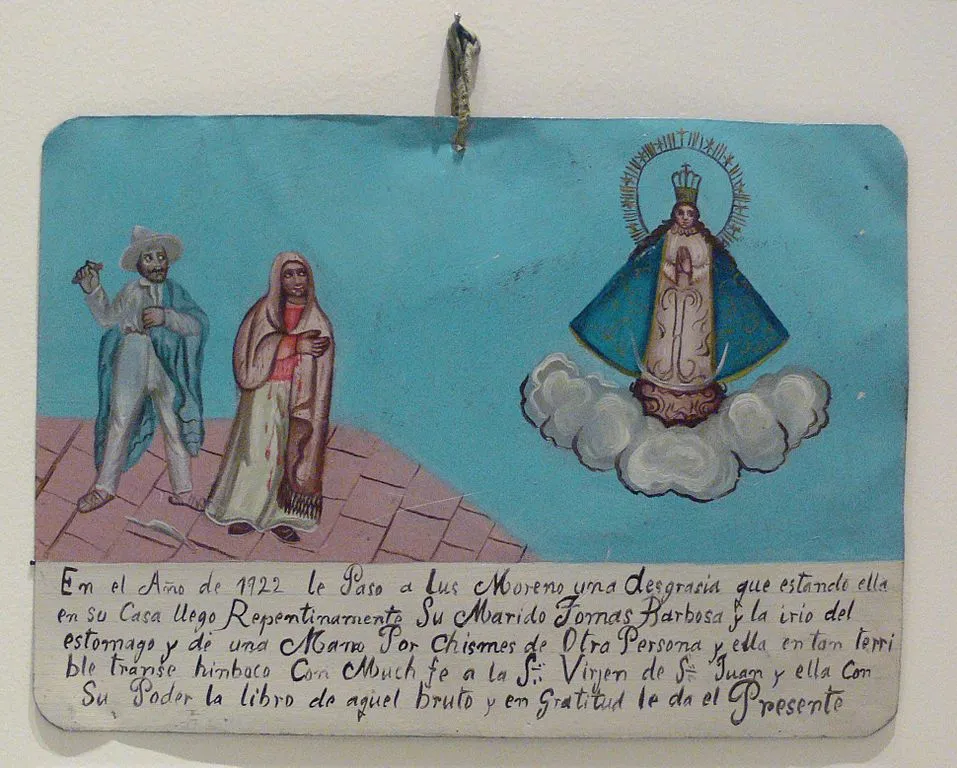 En el Año de 1922 le Paso a Lus Moreno una desgrasia que estando ella
en su Casa llego Repentinamente Su Marido Tomas Barbosa y la irio del
estomago y de una Mano Por Chismes de Otra Persona y ella en tan terri
ble transe hinboco Con Much fe a la S:: Virjen de S:: Juan y ella Con
Su Poder la libro de aquel bruto y en Gratitud le da el Presente